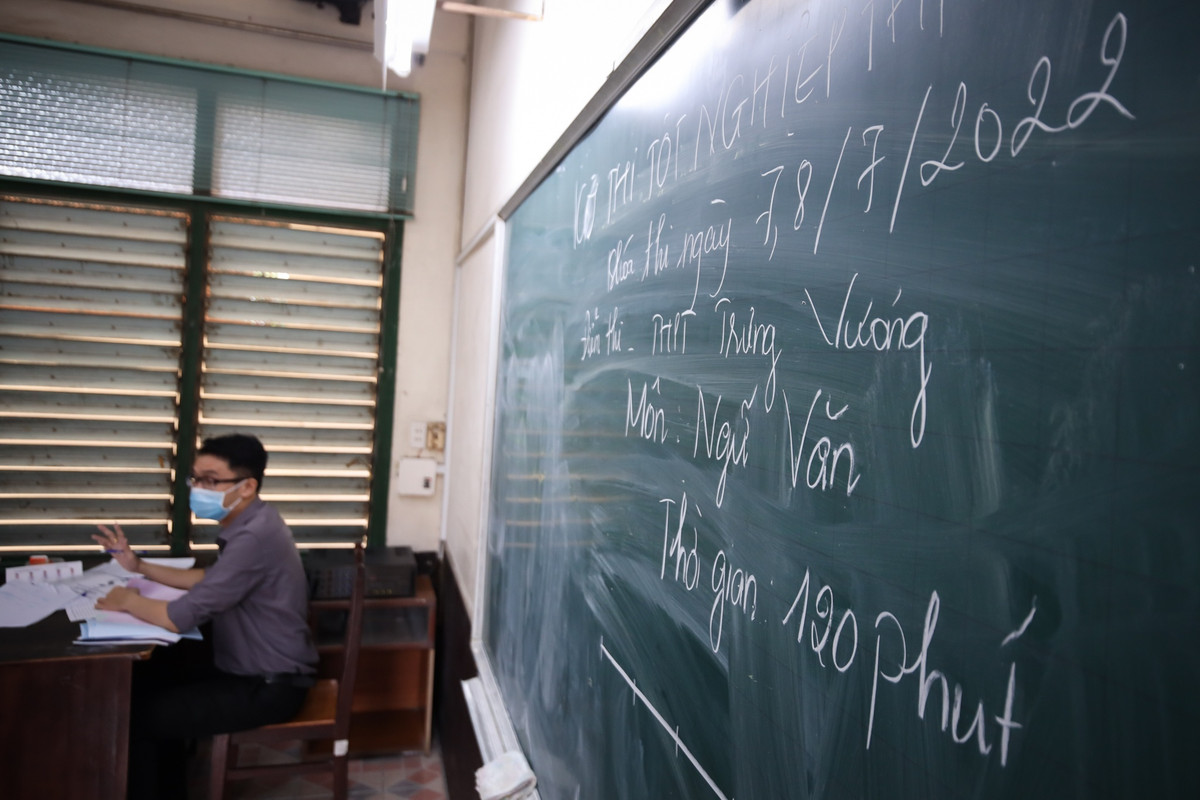 KỲ THI TỐT NGHIỆP THPT
Khóa thi ngày 7,8/7/2022
Điểm thi _ THPT Trưng Vương
Môn: Ngữ Văn
Thời gian: 120 phút